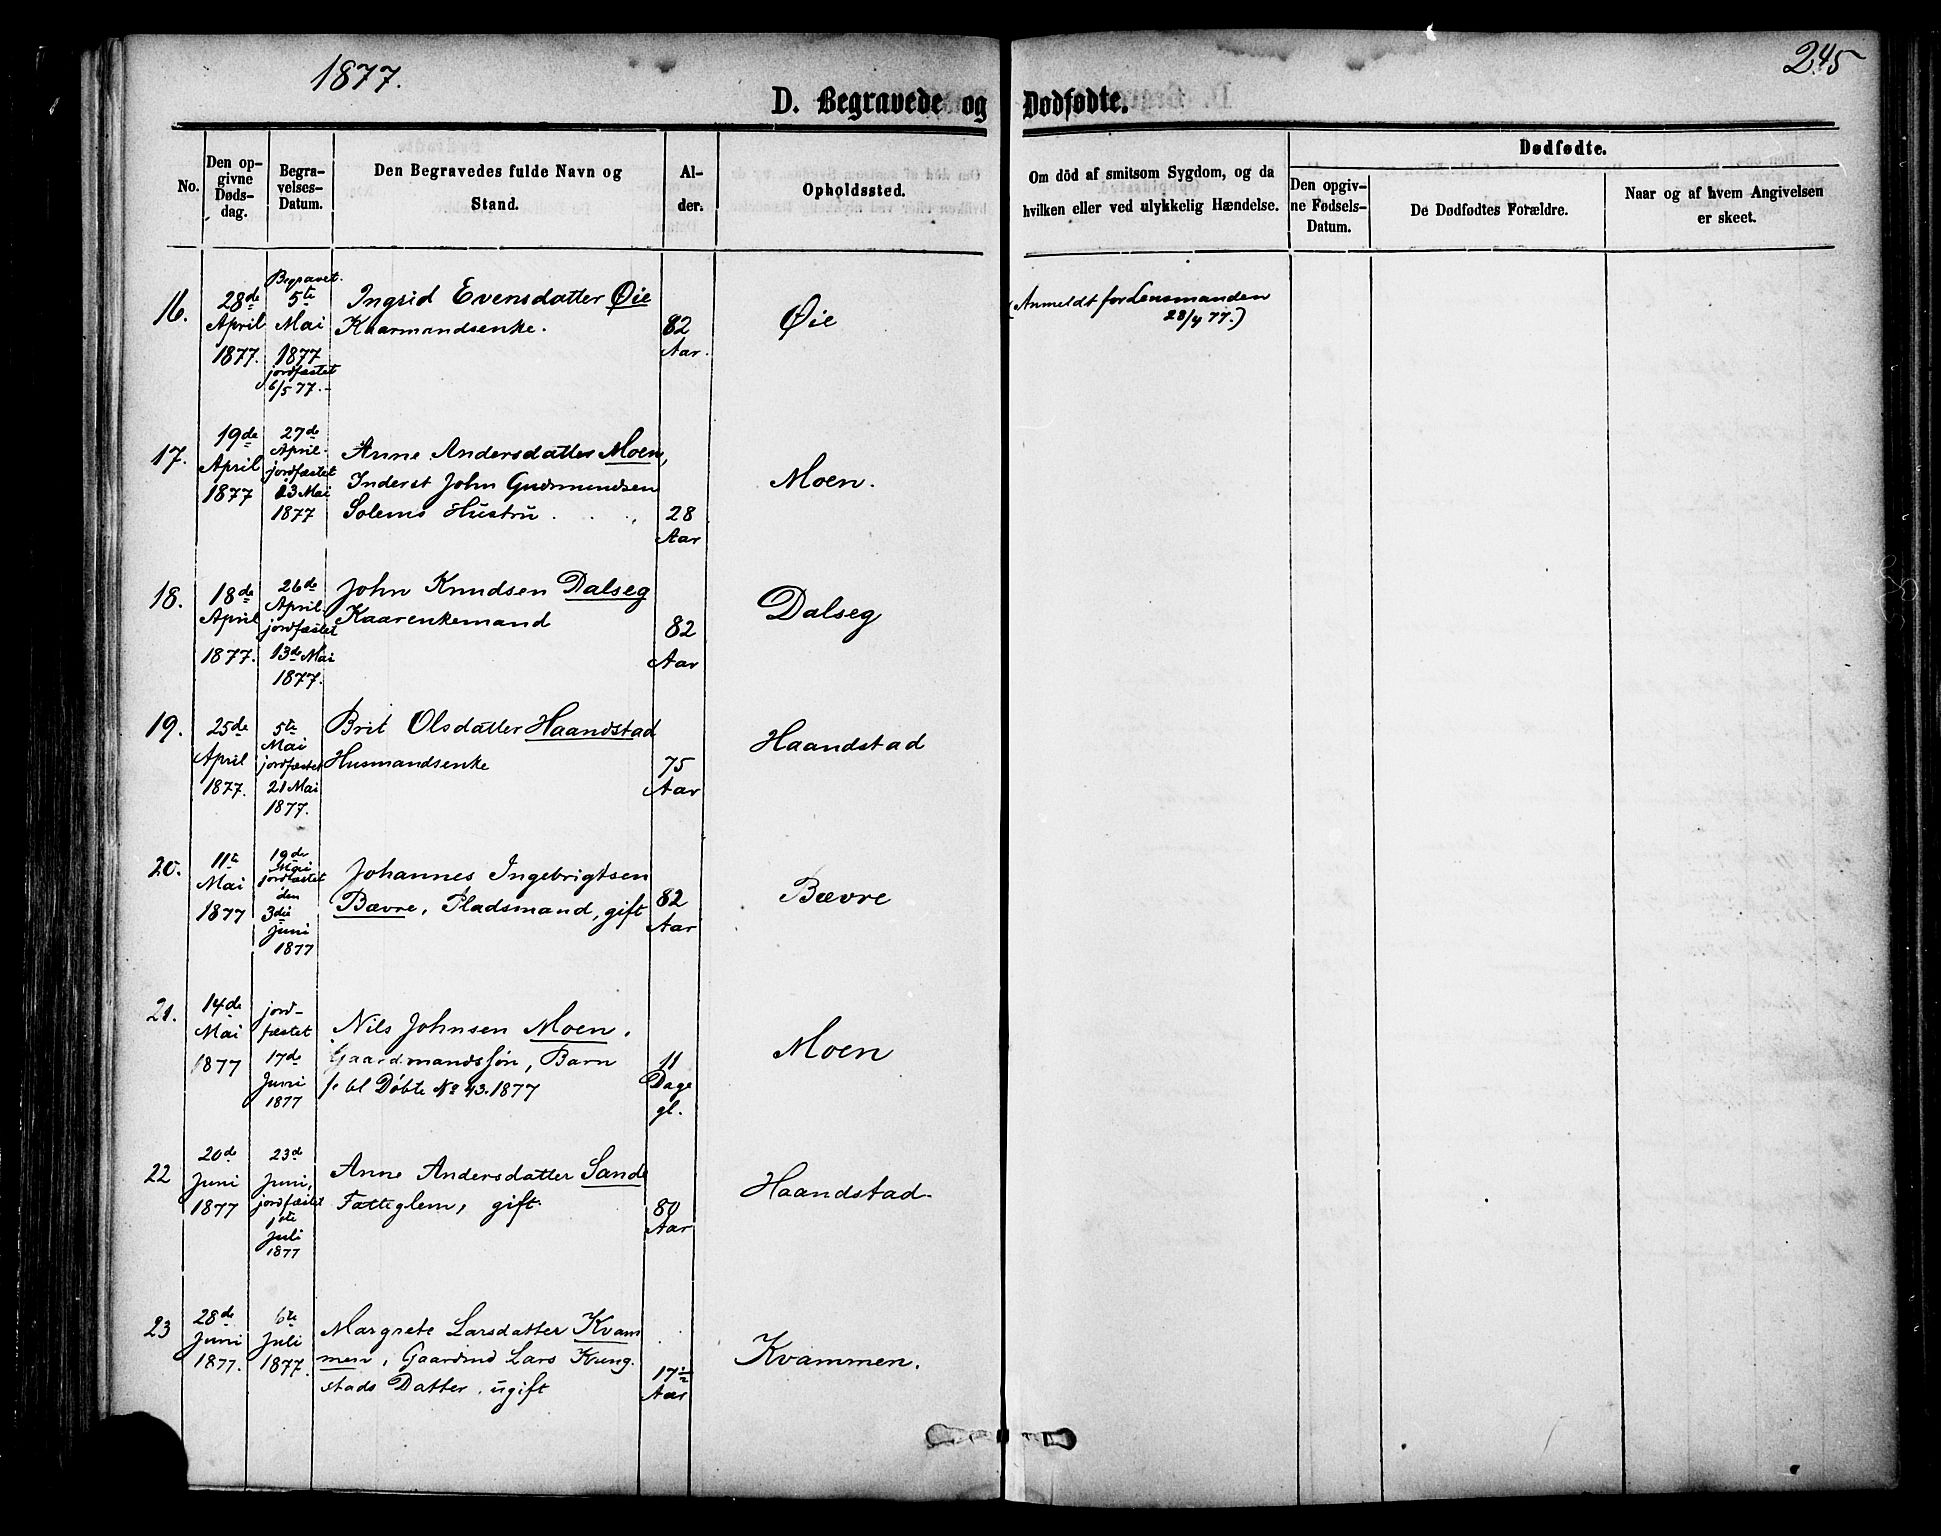 1877.
245
D. Begravede og Dødfødte.
No.
Den op-
givne
Døds-
dag.
Begra-
velses-
Datum.
Den Begravedes fulde Navn og
Stand.
Al-
der.
Opholdssted.
Om död af smitsom Sygdom, og da
hvilken eller ved ulykkelig Hændelse.
Dødfødte.
Den opgiv-
ne Fødsels-
Datum.
De Dødfødtes Forældre.
Naar og af hvem Angivelsen
er skeet.
16.
28de
April
1877.
Begravet.
5te
Mai
1877
jordfæstet
6/5 77.-
Ingrid Evensdatter Øie
Kaarmandsenke.
82
Aar.
Øie
(Anmeldt for Lensmanden
28/4 77.)
17.
19de
April
1877
27de
April.
jordfæstet
13 Mai
1877
Anne Andersdatter Moen,
Inderst John Gudmundsen
Solems Hustru
28
Aar
Moen.
18.
18de
April
1877.
26de
April
jordfæstet
13de Mai
1877.
John Knudsen Dalseg
Kaarenkemand
82
Aar
Dalseg
19.
25de
April
1877.
5te
Mai
jordfæstet
21 Mai
1877.
Brit Olsdatter Haandstad
Husmandsenke
75
Aar
Haandstad
20.
11te
Mai
1877
19de
Mai
jordfæstet
den
3die
Juni
1877
Johannes Ingebrigtsen
Bævre, Pladsmand, gift
82
Aar
Bævre
21.
14de
Mai
1877
jord-
fæstet
17de
Juni
1877
Nils Johnsen Moen.
Gaardmandssøn, Barn
f. bl Døbte No 43. 1877
11
Dage
gl.
Moen
22
20de
Juni
1877
23de
Juni,
jordfæstet
1ste
Juli
1877
Anne Andersdatter Sande
Fatteglem, gift.
80
Aar
Haandstad.
23
28de
Juni
1877.
6te
Juli
1877.
Margrete Larsdatter Kvam
men, Gaardmd Lars Kreng.
stads Datter. ugift
17 1/2
Aar
Kvammen.